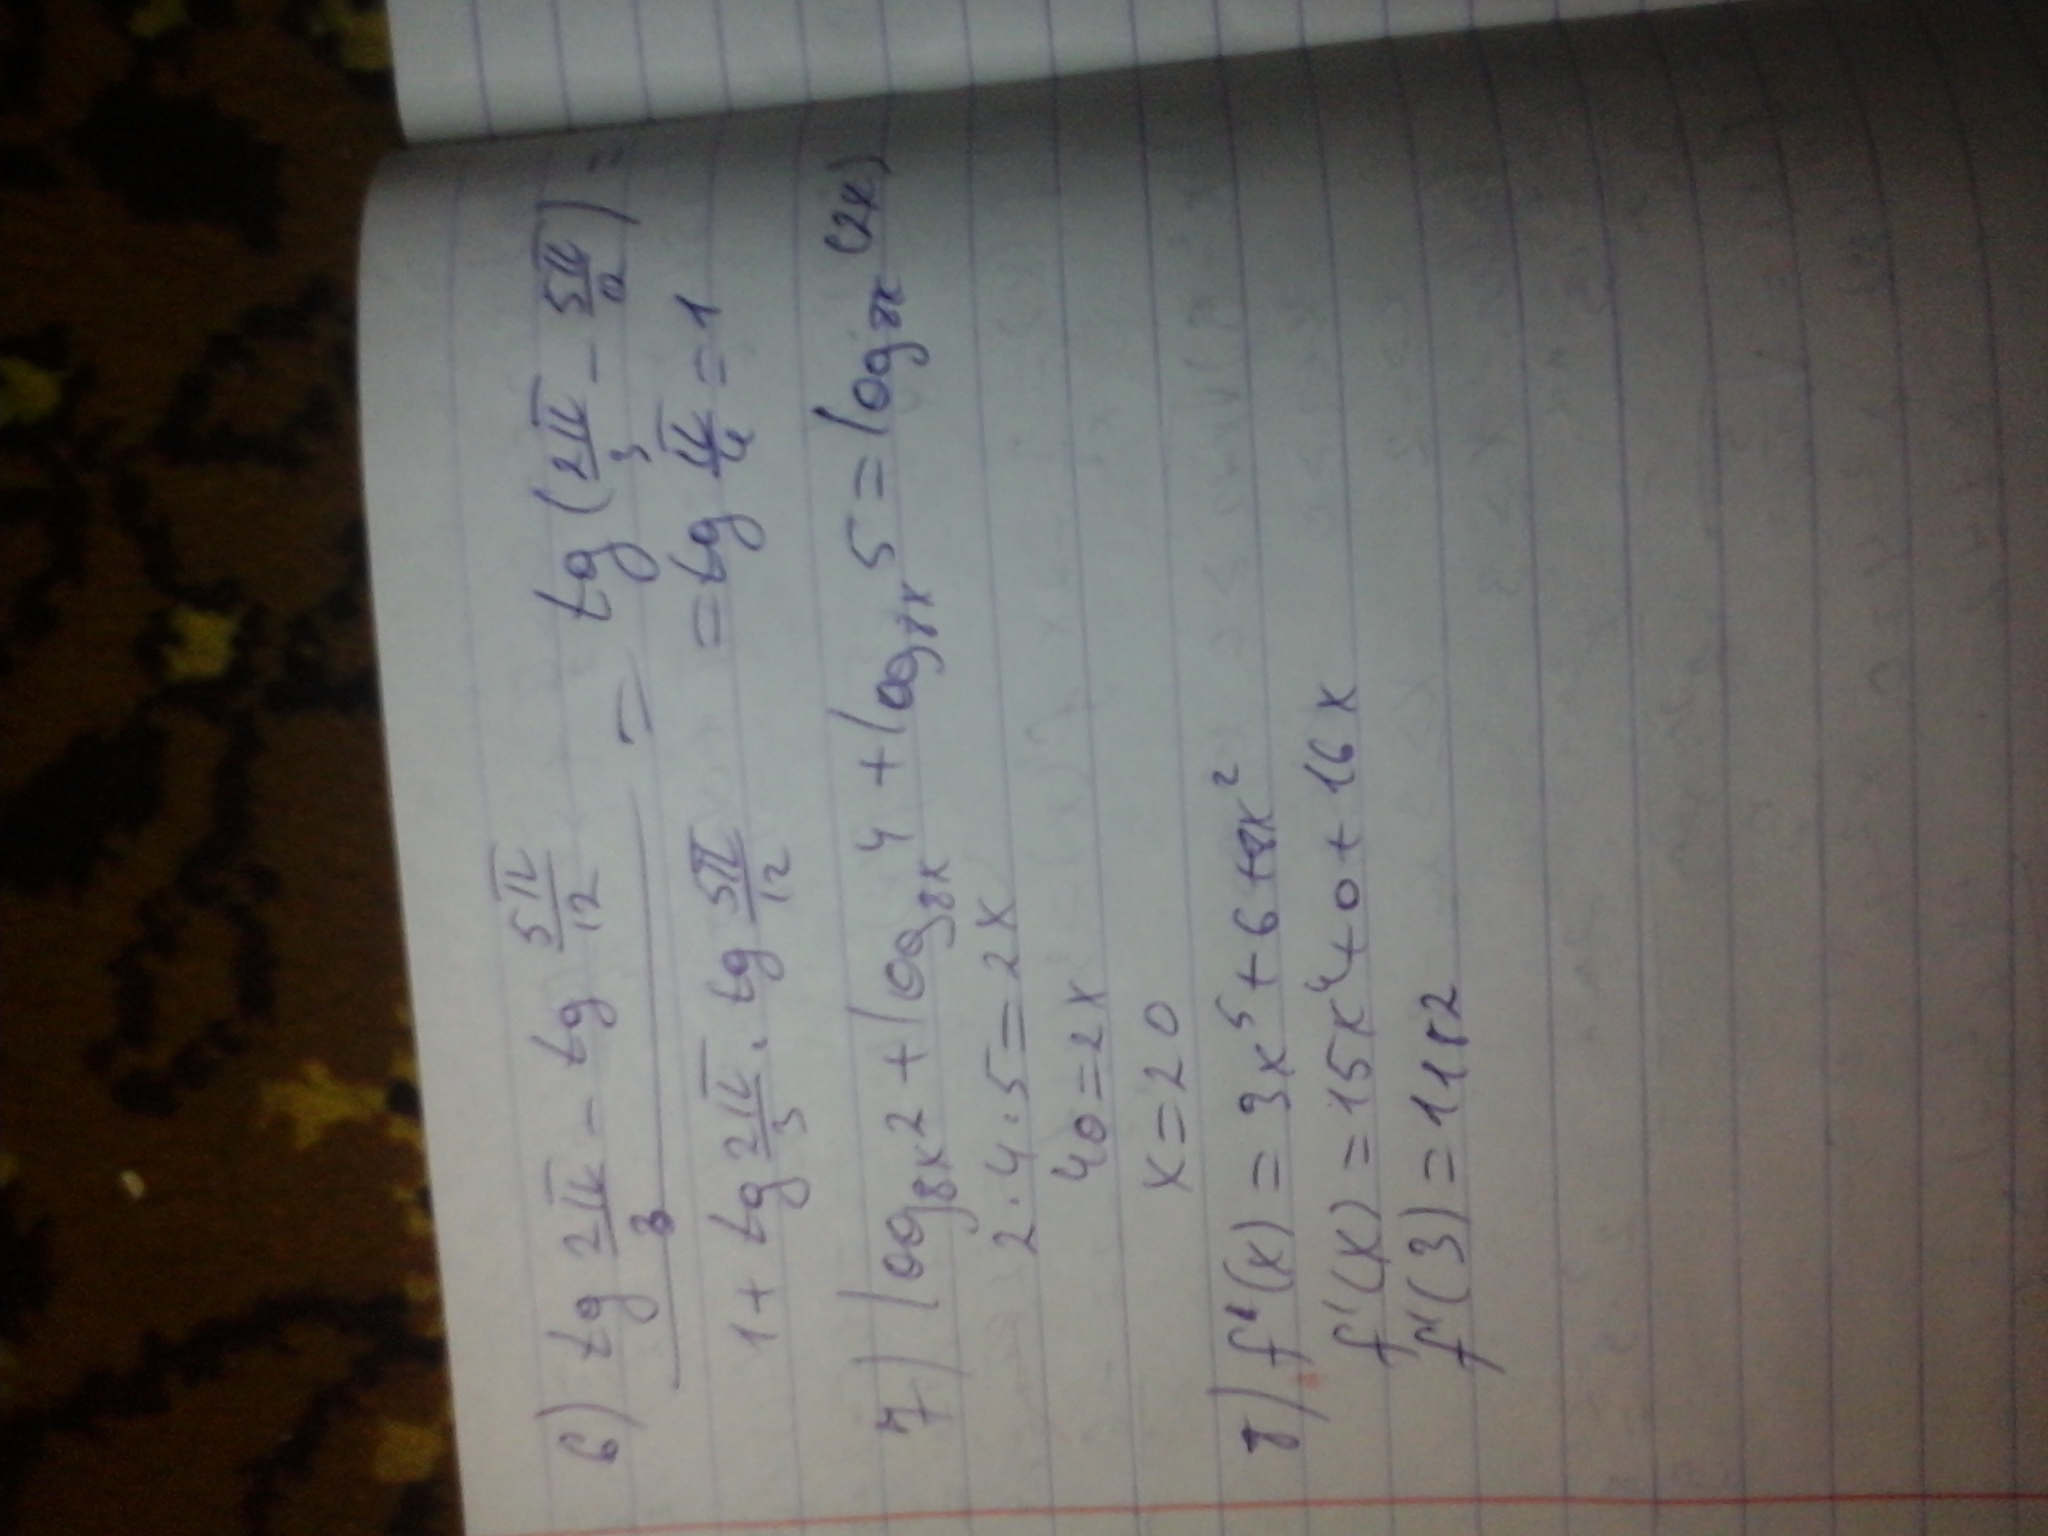 6) tg 2π/3 - tg 5π/12 = tg (2π/3 - 5π/12) =
1 + tg 2π/3 · tg 5π/12 = tg π/4 = 1
7) log₈ₓ2 + log₈ₓ4 + log₈ₓ5 = log₈ₓ(2x)
2·4·5=2x
40=2x
x=20
8) f'(x) = 3x⁵+6+8x²
f'(x) =15x⁴+0+16x
f'(3) =